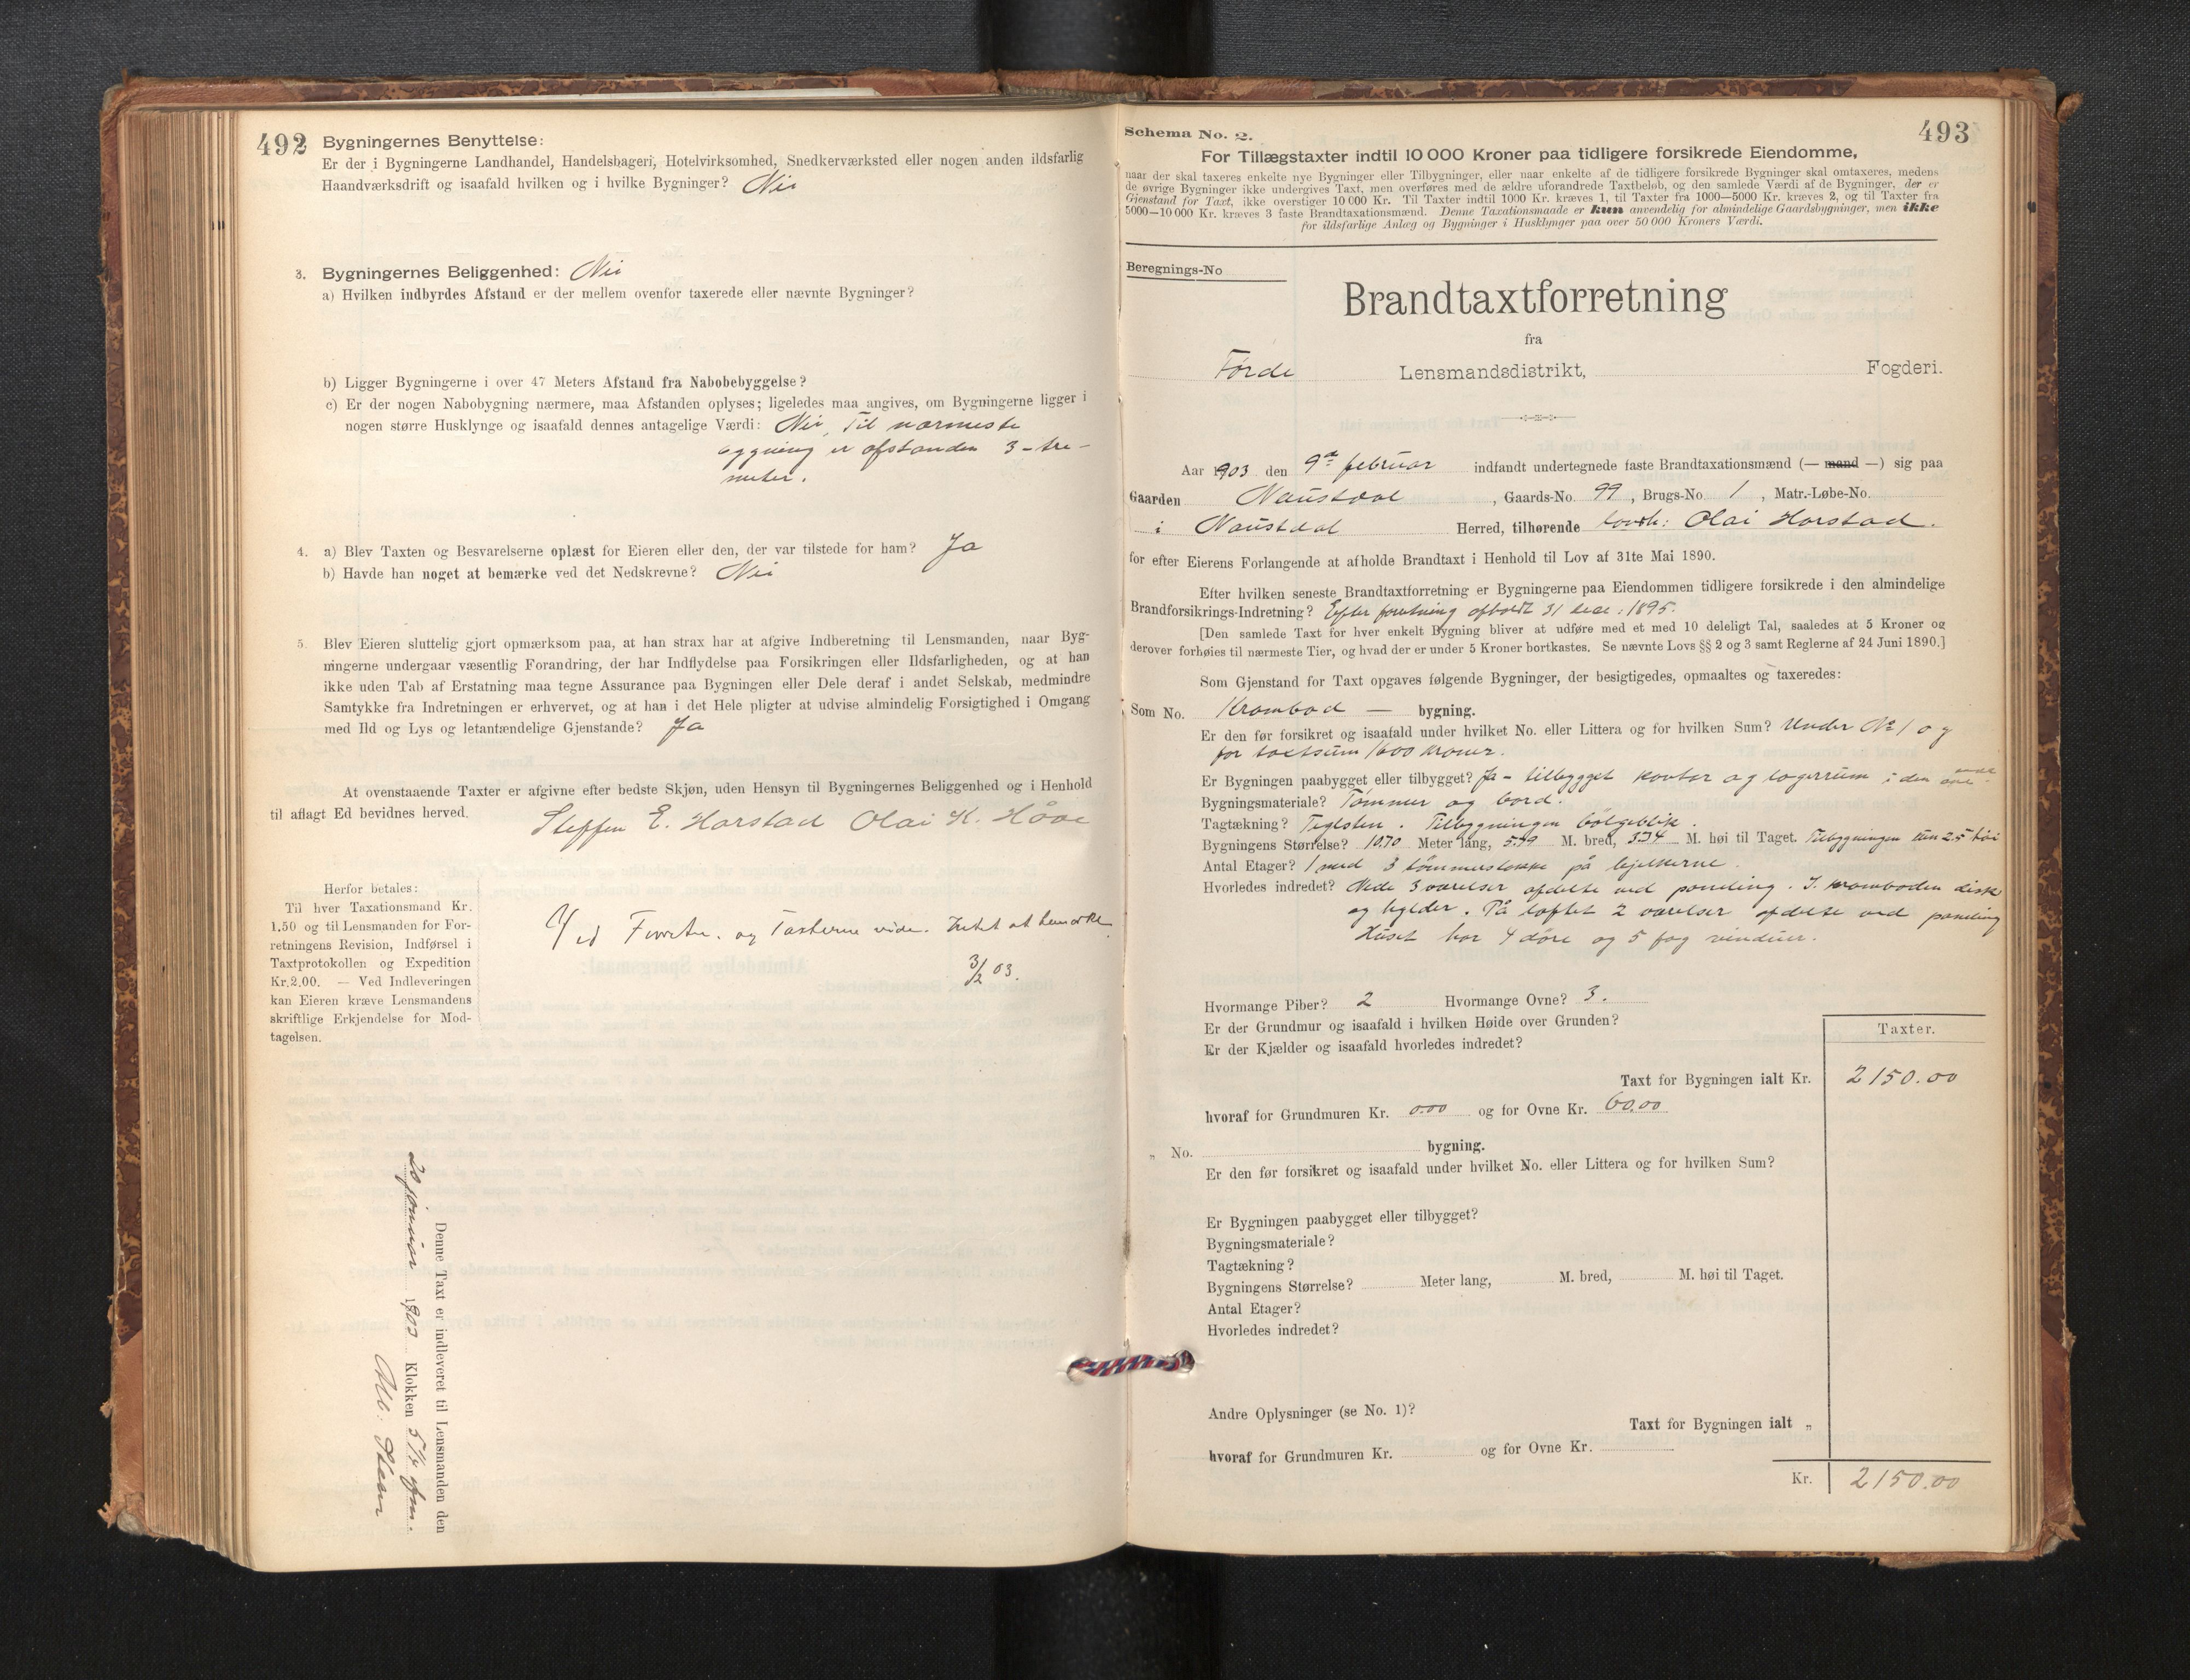 492
Bygningernes Benyttelse:
Er der i Bygningerne Landhandel, Handelsbageri, Hotelvirksomhed, Snedkerværksted eller nogen anden ildsfarlig
Haandværksdrift og isaafald hvilken og i hvilke Bygninger? Nei
3. Bygningernes Beliggenhed: Nei
a) Hvilken indbyrdes Afstand er der mellem ovenfor taxerede eller nævnte Bygninger?
b) Ligger Bygningerne i over 47 Meters Afstand fra Nabobebyggelse?
c) Er der nogen Nabobygning nærmere, maa Afstanden oplyses; ligeledes maa angives, om Bygningerne ligger i
nogen større Husklynge og isaafald dennes antagelige Værdi: Nei, Til nærmeste
bygning er afstanden 3 - tre -
meter.
4. a) Blev Taxten og Besvarelserne oplæst for Eieren eller den, der var tilstede for ham? Ja
b) Havde han noget at bemærke ved det Nedskrevne? Nei
5. Blev Eieren sluttelig gjort opmærksom paa, at han strax har at afgive Indberetning til Lensmanden, naar Byg-
ningerne undergaar væsentlig Forandring, der har Indflydelse paa Forsikringen eller Ildsfarligheden, og at han
ikke uden Tab af Erstatning maa tegne Assurance paa Bygningen eller Dele deraf i andet Selskab, medmindre
Samtykke fra Indretningen er erhvervet, og at han i det Hele pligter at udvise almindelig Forsigtighed i Omgang
med Ild og Lys og letantændelige Gjenstande? Ja
At ovenstaaende Taxter er afgivne efter bedste Skjøn, uden Hensyn til Bygningernes Beliggenhed og i Henhold
til aflagt Ed bevidnes herved.
Steffen E. Horstad Olai K. Håve
Herfor betales:
Til hver Taxationsmand Kr.
1.50 og til Lensmanden for For-
retningens Revision, Indførsel i
Taxtprotokollen og Expedition
Kr.2.00. — Ved Indleveringen
kan Eieren kræve Lensmandens
skriftlige Erkjendelse for Mod-
tagelsen.
Ved Forretn. og Taxterne vides Intet at bemærke
3/2 03.
Denne Taxt er indleveret til Lensmanden den
20 januar 1903 Klokken 5 1/2 fm.
Alb:
Schema No. 2.
493
For Tillægstaxter indtil 10 000 Kroner paa tidligere forsikrede Eiendomme,
naar der skal taxeres enkelte nye Bygninger eller Tilbygninger, eller naar enkelte af de tidligere forsikrede Bygninger skal omtaxeres, medens
de øvrige Bygninger ikke undergives Taxt, men overføres med de ældre uforandrede Taxtbeløb, og den samlede Værdi af de Bygninger, der er
Gjenstand for Taxt, ikke overstiger 10 000 Kr. Til Taxter indtil 1000 Kr. kræves 1, til Taxter fra 1000—5000 Kr. kræves 2, og til Taxter fra
5000—10 000 Kr. kræves 3 faste Brandtaxationsmænd. Denne Taxationsmaade er kun anvendelig for almindelige Gaardsbygninger, men ikke
for ildsfarlige Anlæg og Bygninger i Husklynger paa over 50 000 Kroners Værdi.
Beregnings-No
Brandtaxtforretning
fra
Førde Lensmandsdistrikt, Fogderi.
Aar 1903 den 9de februar indfandt undertegnede faste Brandtaxationsmænd (— mand —) sig paa
Gaarden Naustdal, Gaards-No. 99, Brugs-No. 1, Matr.-Løbe-No.
i Naustdal Herred, tilhørende Olai Horstad.
for efter Eierens Forlangende at afholde Brandtaxt i Henhold til Lov af 31te Mai 1890.
Efter hvilken seneste Brandtaxtforretning er Bygningerne paa Eiendommen tidligere forsikrede i den almindelige
Brandforsikrings-Indretning? Efter forretning afholdt 31 dece: 1895.
[Den samlede Taxt for hver enkelt Bygning bliver at udføre med et med 10 deleligt Tal, saaledes at 5 Kroner og
derover forhøies til nærmeste Tier, og hvad der er under 5 Kroner bortkastes. Se nævnte Lovs §§ 2 og 3 samt Reglerne af 24 Juni 1890.]
Som Gjenstand for Taxt opgaves følgende Bygninger, der besigtigedes, opmaaltes og taxeredes:
Som No. Krambod — bygning.
Er den før forsikret og isaafald under hvilket No. eller Littera og for hvilken Sum? Under No 1 og
for taxtsum 1600 kroner.
Er Bygningen paabygget eller tilbygget? Ja - tilbygget kontor og lagerrum i den
Bygningsmateriale? Tømmer og bord.
Tagtækning? Teglsten. Tilbygningen bølgeblik.
Bygningens Størrelse? 10.70 Meter lang, 5.99 M. bred, 3.34 M. høi til Taget. Tilbygningen kun 2.5 høi
Antal Etager? 1 med 3 tømmerstokke på bjelkerne.
Hvorledes indredet? Nede 3 værelser afdelte ved paneling. I kramboden disk
og hylder. På loftet 2 værelser afdelte ved paneling
Huset har 4 døre og 5 fag vinduer.
Hvormange Piber? 2 Hvormange Ovne? 3.
Er der Grundmur og isaafald i hvilken Høide over Grunden?
Er der Kjælder og isaafald hvorledes indredet?
Taxter.
Taxt for Bygningen ialt Kr. 2150.00
hvoraf for Grundmuren Kr. 0.00 og for Ovne Kr. 60.00
„ No. bygning.
Er den før forsikret og isaafald under hvilket No. eller Littera og for hvilken Sum?
Er Bygningen paabygget eller tilbygget?
Bygningsmateriale?
Tagtækning?
Bygningens Størrelse? Meter lang, M. bred, M. høi til Taget.
Antal Etager?
Hvorledes indredet?
Andre Oplysninger (se No. 1)?
Taxt for Bygningen ialt „
hvoraf for Grundmuren Kr. og for Ovne Kr.
Kr. 2150.00